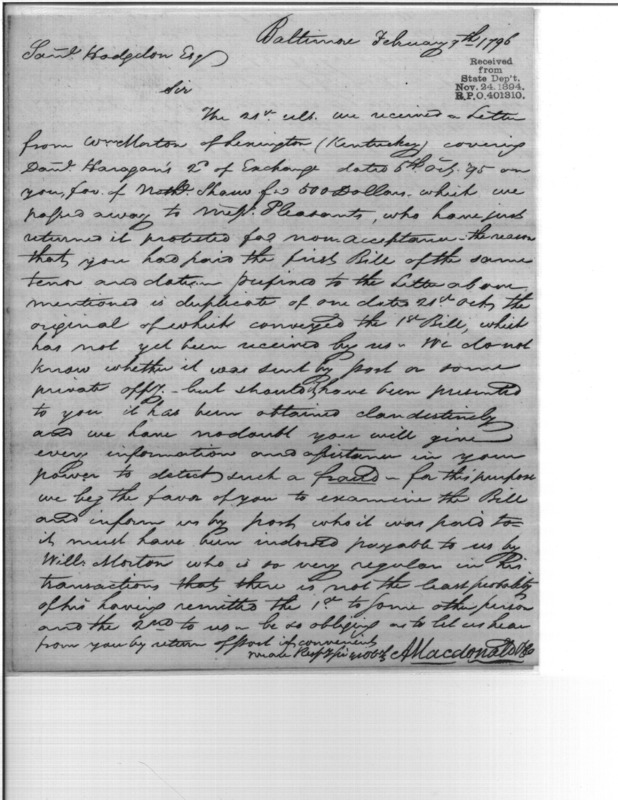 Baltimore February 7th 1796
Saml Hodgdon Esqr
Received
from
State Dep't.
Nov. 24. 1894.
R.P.O. 401310.
Sir
The 21st ulto. we received a Letter
from Wm Morton of Lexington (Kentuckey) covering
Danl Haragan's 2d of Exchange dated 6th 95 on
you, fav. of Nathl. Shaw for 500 Dollars. which we
passed away to Messrs. Pleasants, who have just
returned it protested for non acceptance - the reason
that you had paid the first Bill of the same
tenor and date, prefixed to the Letter above
mentioned is duplicate of one dated 21st Octr, the
original of which conveyed the 1st Bill, which
has not yet been received by us - We do not
know whether it was sent by post or some
private oppy. - but should it have been presented
to you it has been obtained clandestinely
and we have no doubt you will give
every information and assistance in your
power to detect such a fraud - for this purpose
we beg the favor of you to examine the Bill
and inform us by post who it was paid to
it must have been indorsed payable to us by
Will. Morton who is so very regular in his
transactions that there is not the least probality
of his having remitted the 1st to some other person
and the 2nd to us - be so obliging as to let us hear
from you by return of post if convenient
we are A Macdonald & Co